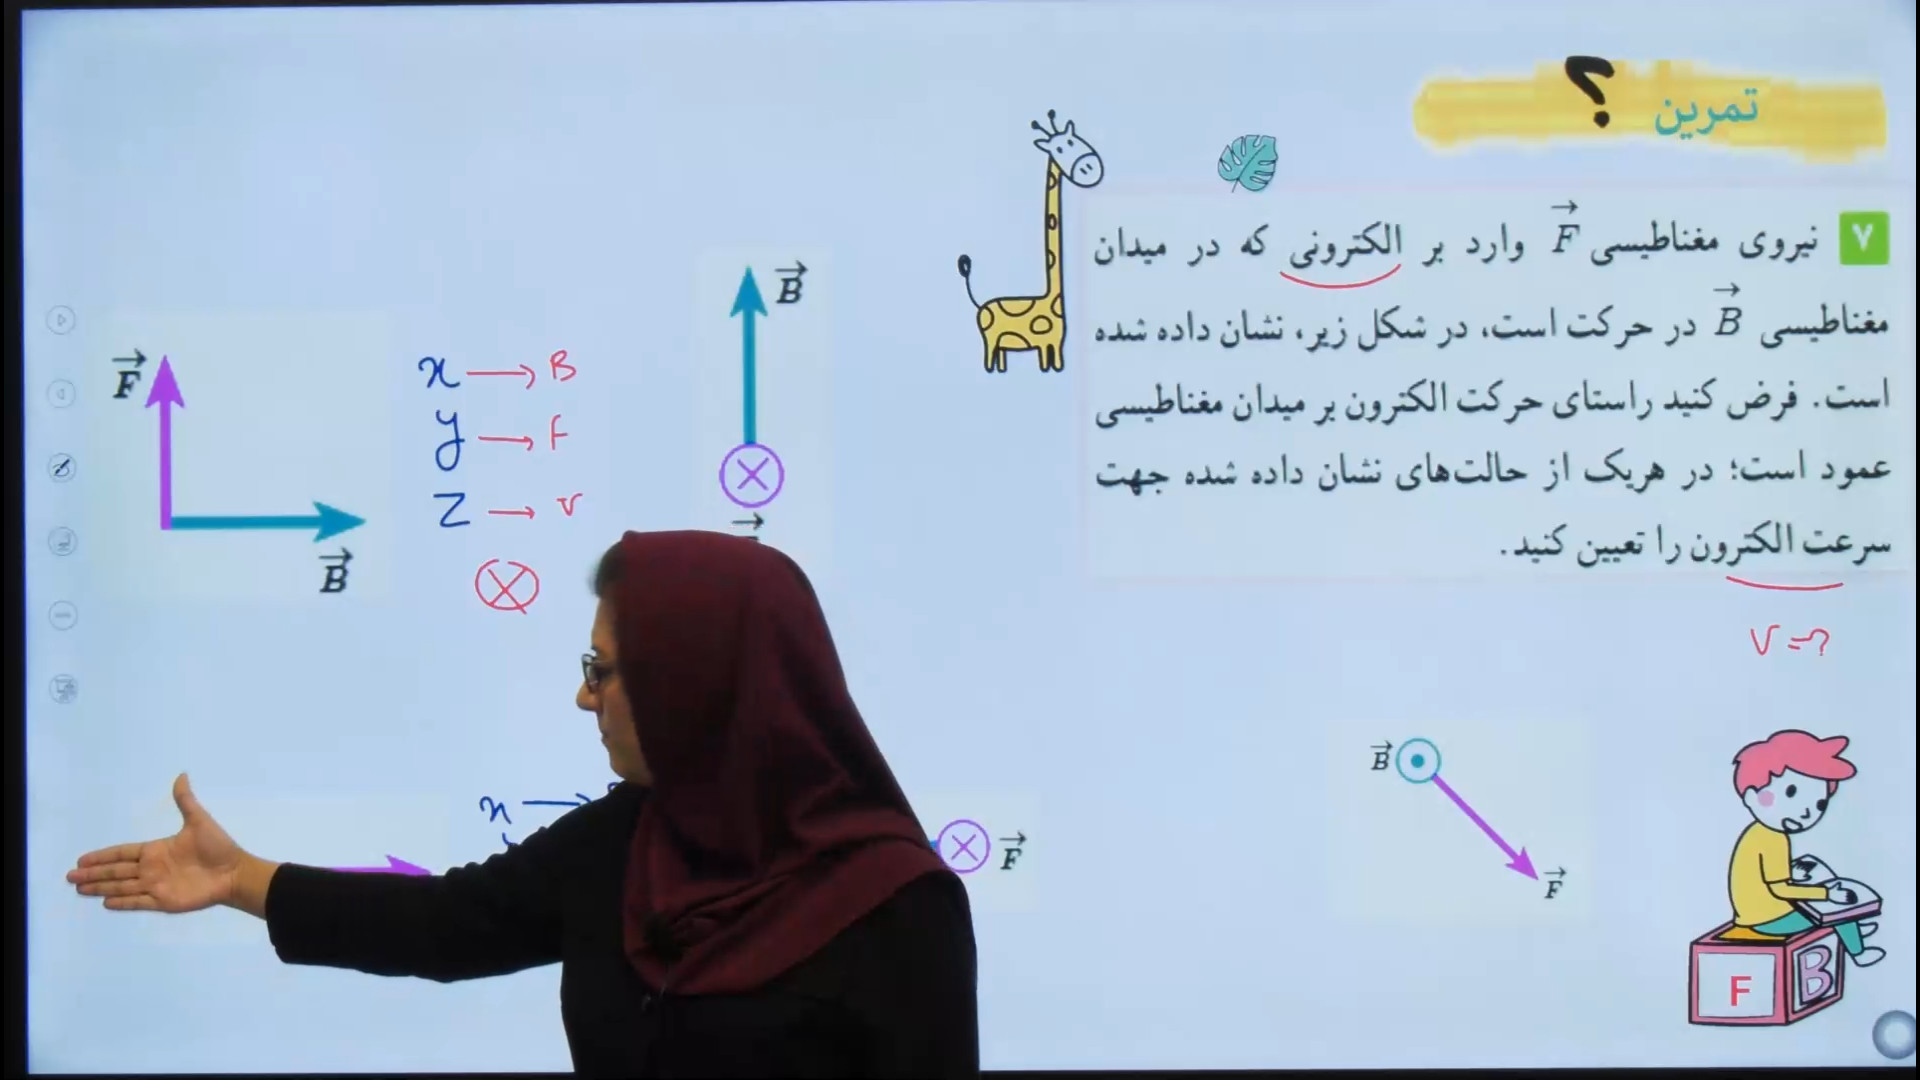 تمرین ؟
۷ نیروی مغناطیسی F⃗ وارد بر الکترونی که در میدان
مغناطیسی B⃗ در حرکت است، در شکل زیر، نشان داده شده
است. فرض کنید راستای حرکت الکترون بر میدان مغناطیسی
عمود است؛ در هریک از حالت‌های نشان داده شده جهت
سرعت الکترون را تعیین کنید.
v = ?
F⃗
B⃗
x → B
y → F
z → v
B⃗
x →
F⃗
B⃗
F⃗
F
B